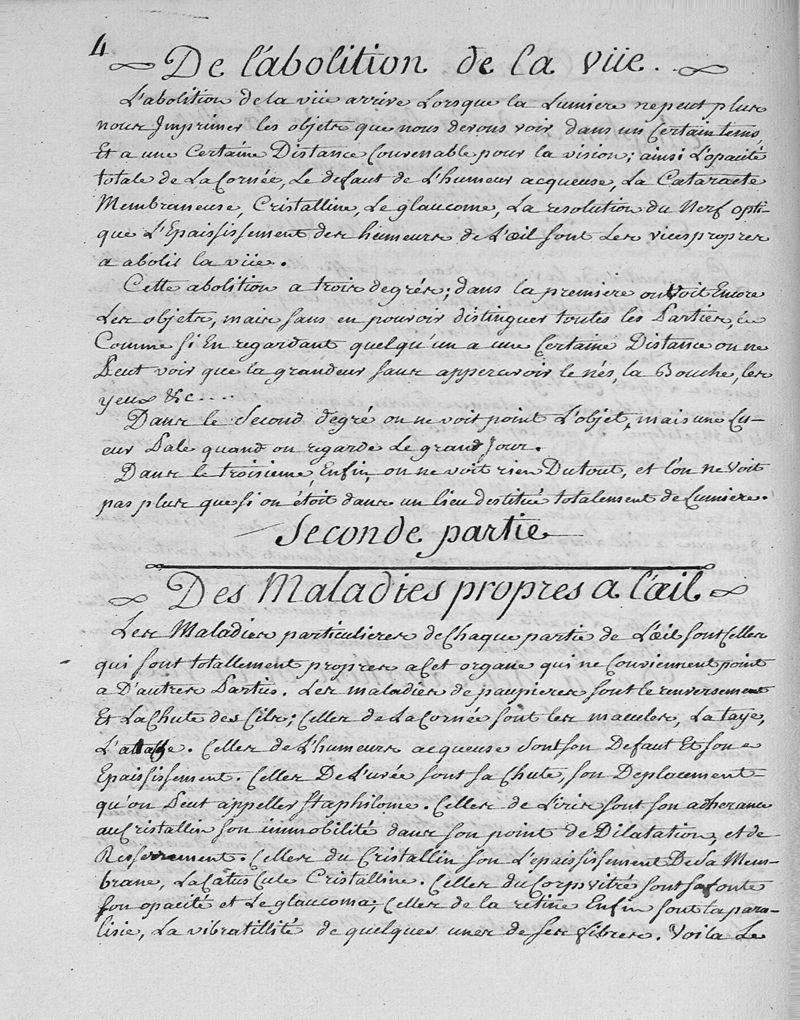 4
De l'abolition de la vüe.
L'abolition de la vüe arrive Lorsque la Lumiere ne peut plus
nous Imprimer les objets que nous devons voir dans un Certain tems,
Et a une Certaine Distance Convenable pour la vision; ainsi L'opacité
totale de La Cornée, Le defaut de L'humeur acqueuse, La Cataracte
Membraneuse, Cristalline, Le glaucome, La resolution du Nerf opti-
que L'Epaississement des humeurs de L'œil sont Les vices propres
a abolis la vüe.
Cette abolition a trois degrés; dans la premiere on Voit Encore
Les objets, mais sans en pouvoir distinguer toutes les Parties,
Comme si En regardant quelqu'un a une Certaine Distance on ne
Peut voir que la grandeur sans appercevoir le nés, la Bouche, les
yeux &c....
Dans le Second degré on ne voit point L'objet, mais une Lu-
eur Pale quand on regarde Le grand Jour.
Dans le troisieme, Enfin, on ne voit rien Du tout, et l'on ne Voit
pas plus que si on étoit dans un lieu destitué totalement de Lumiere.
Seconde partie
Des Maladies propres a l'œil
Les Maladies particulieres de Chaque partie de L'œil sont Celles
qui sont totallement propres a Cet organe qui ne Conviennent point
a D'autres Parties. Les maladies de paupieres sont le renversement
Et La Chute des Cils; Celles de La Cornée sont les macules, La taye,
Celles de L'humeur acqueuse sont son Defaut Et son
Epaississement. Celles De L'uvée sont sa Chute, son Deplacement
qu'on Peut appeller Staphilome. Celles de L'iris sont son adherance
au Cristallin son immobilité dans son point de Dilatation, et de
Resserrement. Celles du Cristallin son L'épaississement De Sa Mem-
brane, La Cristalline. Celles du Corps vitré sont sa fonte
son opacité et Le glaucoma; Celles de la retine Enfin sont la para-
lisie, La vibratillité de quelques unes de ses fibres. Voila Le